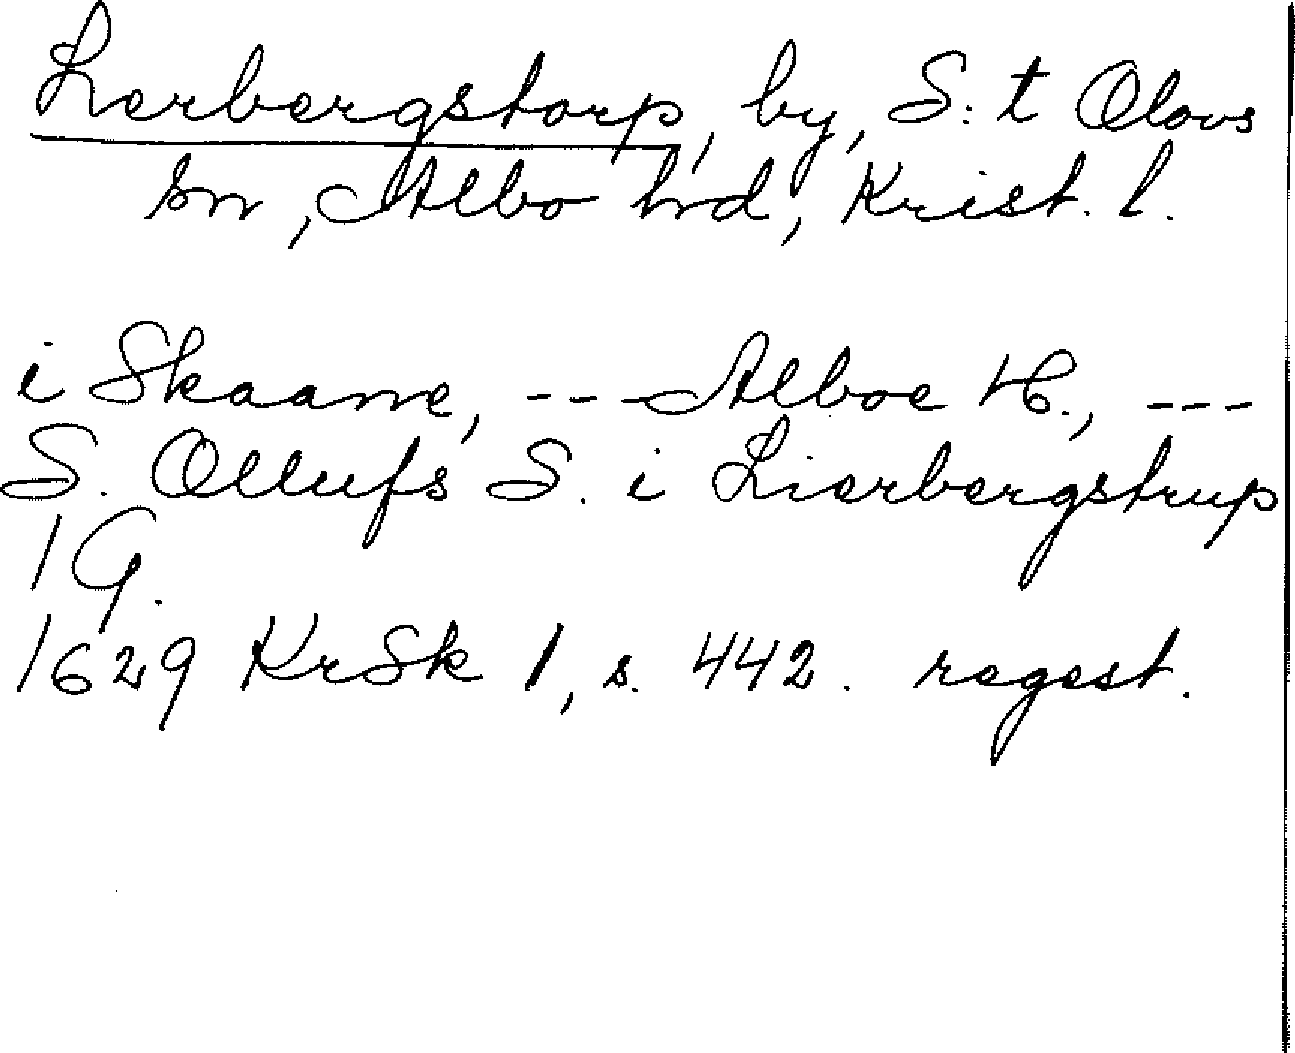 Lerbergstorp, by, S:t Olovs
sn, Albo hrd, Krist. l.
i Skaane, -- Alboe H., ---
S. Ollufs S. i Lierbergstrup
1 G.
1629 KrSk 1, s. 442. regest.